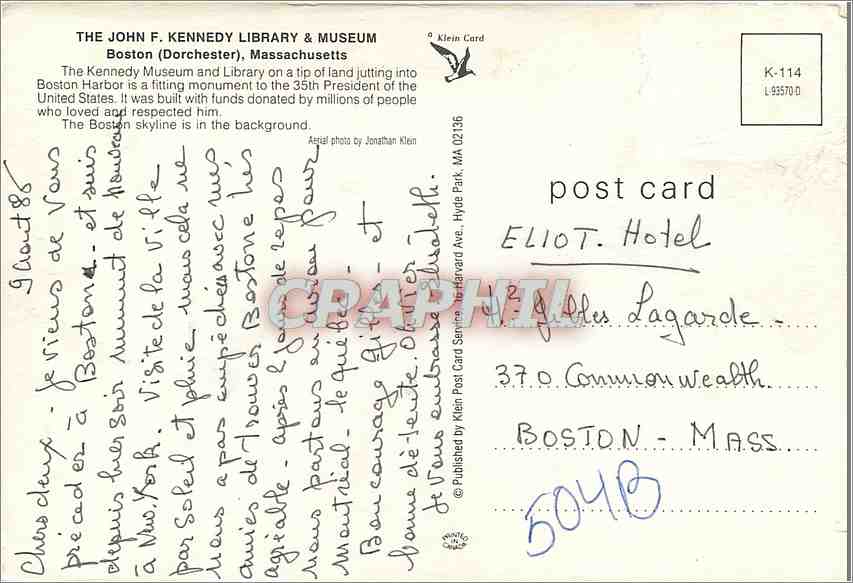 THE JOHN F. KENNEDY LIBRARY & MUSEUM
Boston (Dorchester), Massachusetts
The Kennedy Museum and Library on a tip of land jutting into
Boston Harbor is a fitting monument to the 35th President of the
United States. It was built with funds donated by millions of people
who loved and respected him.
The Boston skyline is in the background.
Aerial photo by Jonathan Klein
Klein Card
K-114
L-93570-D
9 Aout 85
Chers deux - je viens de vous
précéder à Boston - et suis
depuis hier soir minuit de nouveau
à New. York. Visite de la Ville
par soleil et pluie mais cela ne
nous a pas empêchés avec mes
amies de trouver Bostone très
agréable - après 2 jours de repos
nous partons en avion pour
Montréal - le Québec -
Bon courage Gilles - et
bonne détente Olivier -
je vous embrasse Elisabeth.
© Published by Klein Post Card Service, 16 Harvard Ave., Hyde Park, MA 02136
PRINTED
IN
CANADA
post card
ELIOT. Hotel
Gilles Lagarde -
370 Commonwealth
BOSTON - MASS.
504B
CPARHIL